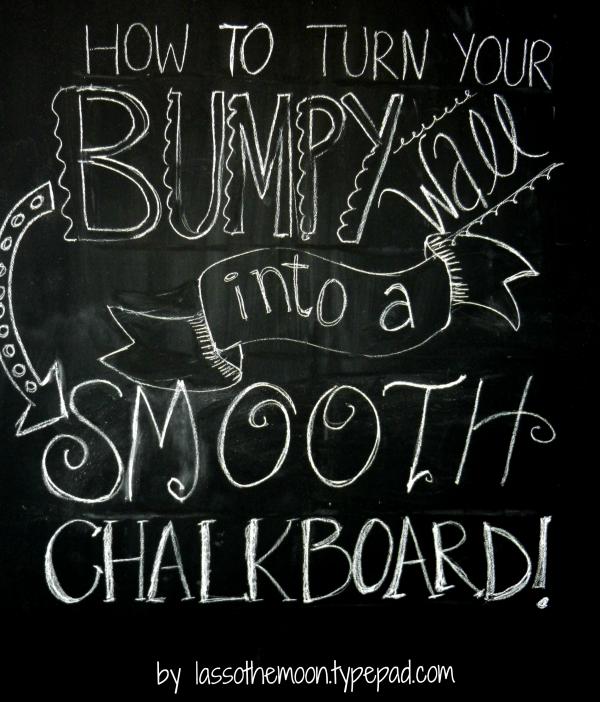 HOW TO TURN YOUR
BUMPY wall
into a
SMOOTH
CHALKBOARD!
by lassothemoon.typepad.com